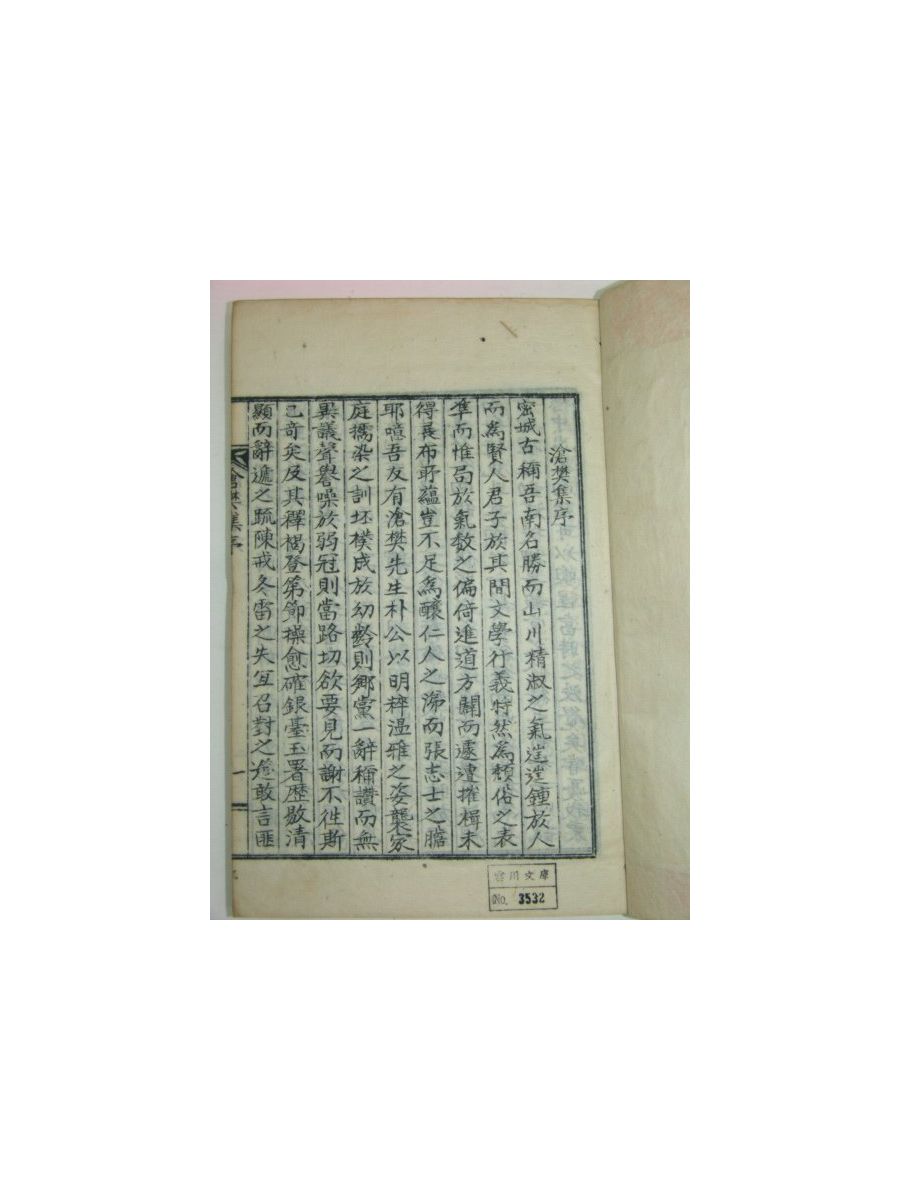 滄樊集序
密城古稱吾南名勝而山川精淑之氣迬迬鍾於人
而爲賢人君子於其間文學行義特然爲頹俗之表
準而惟局於氣數之偏倚進道方闢而遽遭摧楫未
得展布所蘊豈不足爲釀仁人之涕而張志士之膽
耶噫吾友有滄樊先生朴公以明粹溫雅之姿襲家
庭擩染之訓坯樸成於幼齡則鄕黨一辭稱讚而無
異議聲譽噪於弱冠則當路切欲要見而謝不徃斯
已奇矣及其釋褐登第節操愈確銀臺玉署歷敭清
顯而辭遞之疏陳戒冬雷之失宜召對之筵敢言匪
滄樊集序
一
宮川文庫
No. 3532